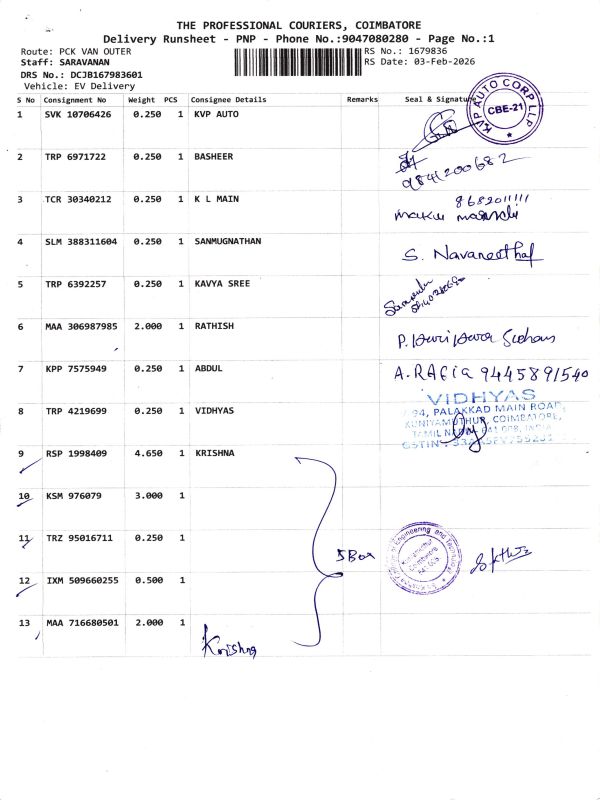 THE PROFESSIONAL COURIERS, COIMBATORE
Delivery Runsheet - PNP - Phone No.:9047080280 - Page No.:1
Route: PCK VAN OUTER RS No.: 1679836
Staff: SARAVANAN RS Date: 03-Feb-2026
DRS No.: DCJB167983601
Vehicle: EV Delivery
S No Consignment No Weight PCS Consignee Details Remarks Seal & Signature
KVP AUTO CORP LLP CBE-21
1 SVK 10706426 0.250 1 KVP AUTO
2 TRP 6971722 0.250 1 BASHEER
9841200682
3 TCR 30340212 0.250 1 K L MAIN 8682011111
4 SLM 388311604 0.250 1 SANMUGNATHAN S. Navaneethaf
5 TRP 6392257 0.250 1 KAVYA SREE
6 MAA 306987985 2.000 1 RATHISH
7 KPP 7575949 0.250 1 ABDUL A. RAFIA 9445891540
VIDHYAS
8 TRP 4219699 0.250 1 VIDHYAS 94, PALAKKAD MAIN ROAD,
KUNIYAMUTHUR, COIMBATORE,
TAMIL NADU - 641 008, INDIA
GSTIN:
9 RSP 1998409 4.650 1 KRISHNA
10 KSM 976079 3.000 1
11 TRZ 95016711 0.250 1
5 Box
Engineering and Technology
Kuniamuthur
Coimbatore
12 IXM 509660255 0.500 1
13 MAA 716680501 2.000 1
Krishna